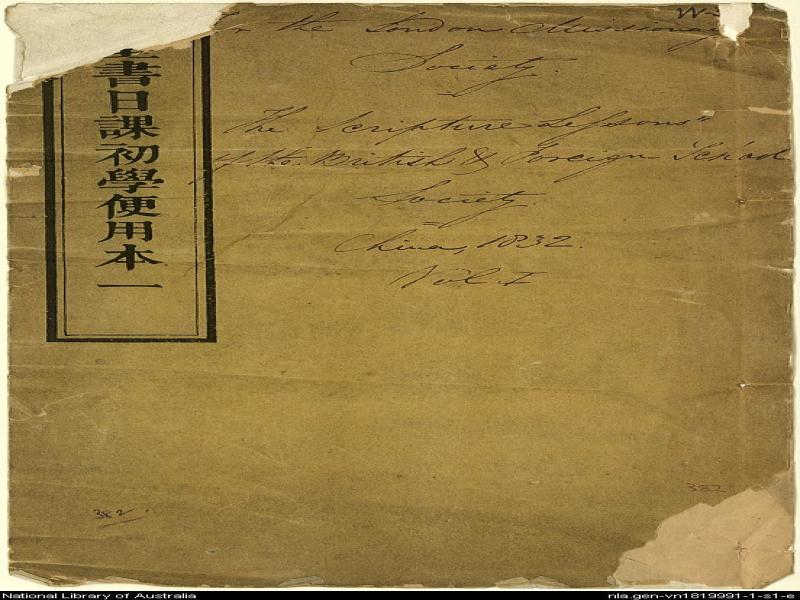 W
For the London Missionary
Society.
"The Scripture Lessons"
of the British & Foreign School
Society.
China, 1832.
Vol. I
書日課初學便用本一
382
332
National Library of Australia
nla.gen-vn1819991-1-s1-e